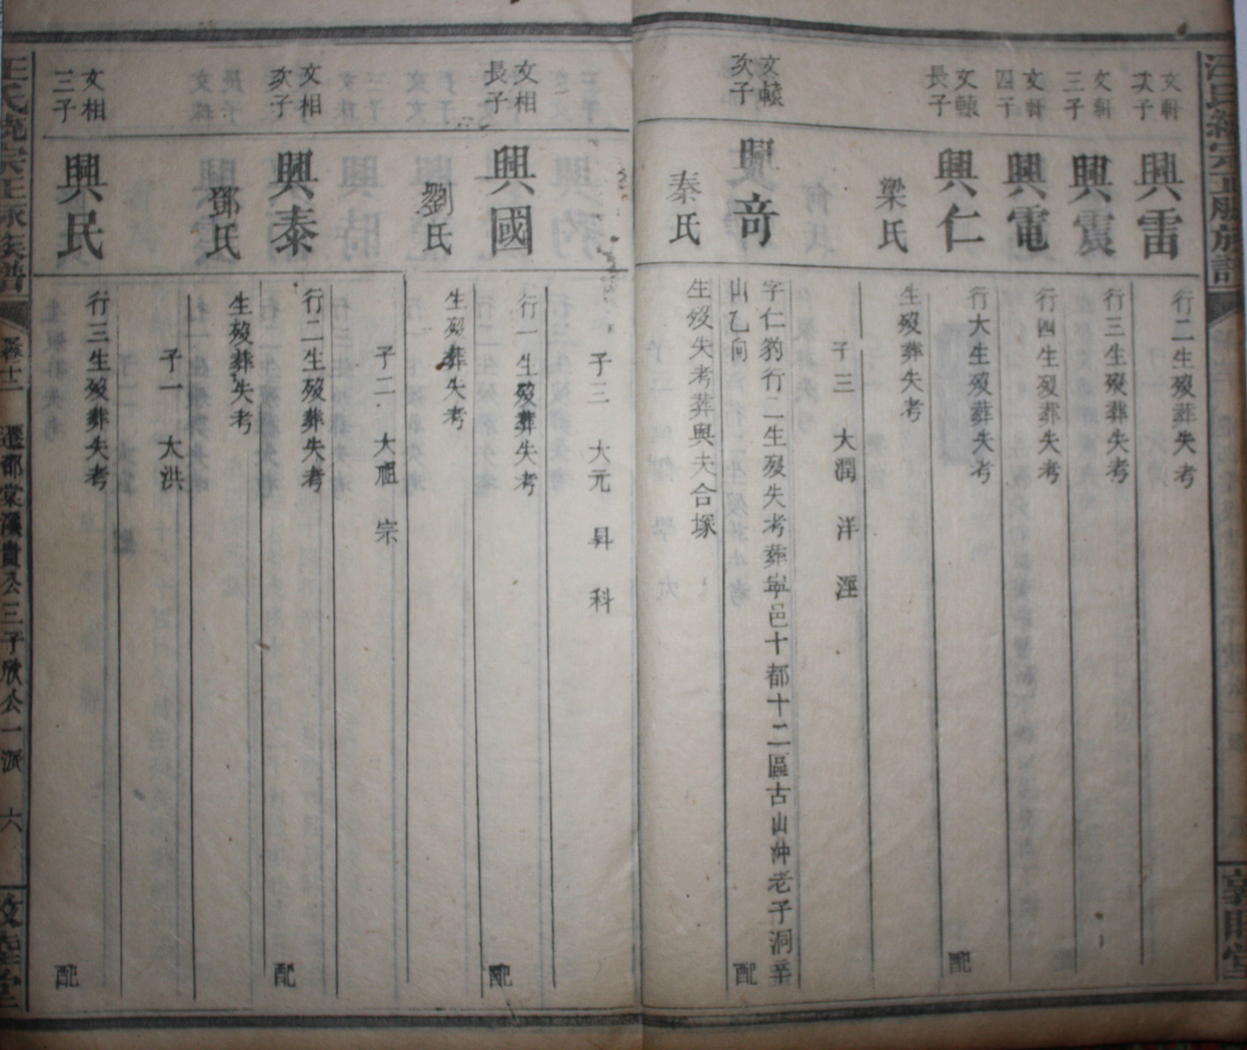 文軒
次子
興雷
行二生歿葬失考
文軒
三子
興震
行三生歿葬失考
文軒
四子
興電
行四生歿葬失考
文轅
長子
興仁
行大生歿葬失考
配
梁氏
生歿葬失考
子三 大潤 洋 溼
文轅
次子
興奇
字仁豹行二生歿失考葬寧邑十都十二區古山冲老子洞辛
山乙向
配
秦氏
生歿失考葬與夫合塚
子三 大元 昇 科
文相
長子
興國
行一生歿葬失考
配
劉氏
生歿葬失考
子二 大祖 宗
文相
次子
興泰
行二生歿葬失考
配
鄧氏
生歿葬失考
子一 大洪
文相
三子
興民
行三生歿葬失考
配
卷十二 遷都棠溪貴公三子欣公一派 六